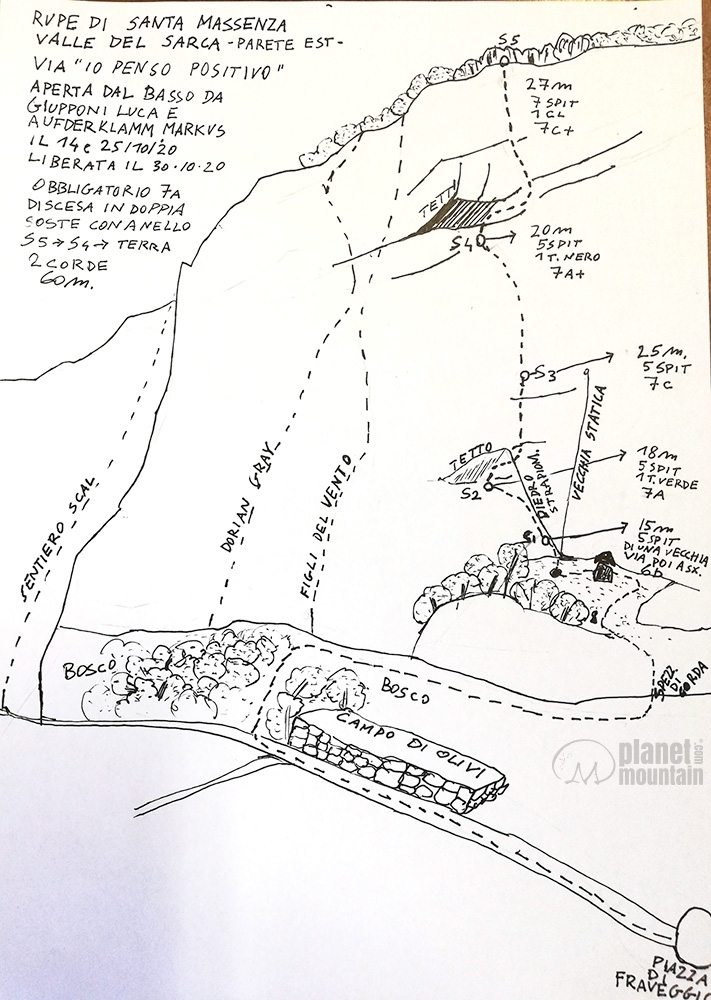 RUPE DI SANTA MASSENZA
VALLE DEL SARCA - PARETE EST -
VIA "IO PENSO POSITIVO"
APERTA DAL BASSO DA
GIUPPONI LUCA E
AUFDERKLAMM MARKUS
IL 14 e 25/10/20
LIBERATA IL 30.10.20
OBBLIGATORIO 7A
DISCESA IN DOPPIA
SOSTE CON ANELLO
S5 → S4 → TERRA
2 CORDE
60m.
S5
27m
7 SPIT
1 CL
7C+
TETTI
S4
20m
5SPIT
1T. NERO
7A+
S3
25m.
5 SPIT
7C
VECCHIA STATICA
TETTO
S2
DIEDRO
STRAPIOM.
18m
5SPIT
1T. VERDE
7A
S1
15m
5SPIT
DI UNA VECCHIA
VIA POI A SX.
6b
SENTIERO SCAL
DORIAN GRAY
FIGLI DEL VENTO
BOSCO
BOSCO
SPEZZ.
DI
CORDA
CAMPO DI OLIVI
planet
mountain
.com
PIAZZA
DI
FRAVEGGIO